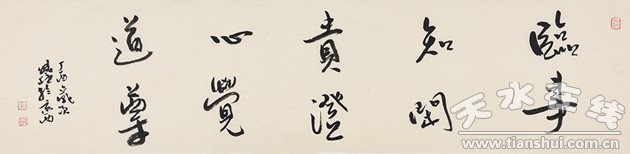 臨事
知閑
貴澄
心覺
道尊
天水在线
www.tianshui.com.cn